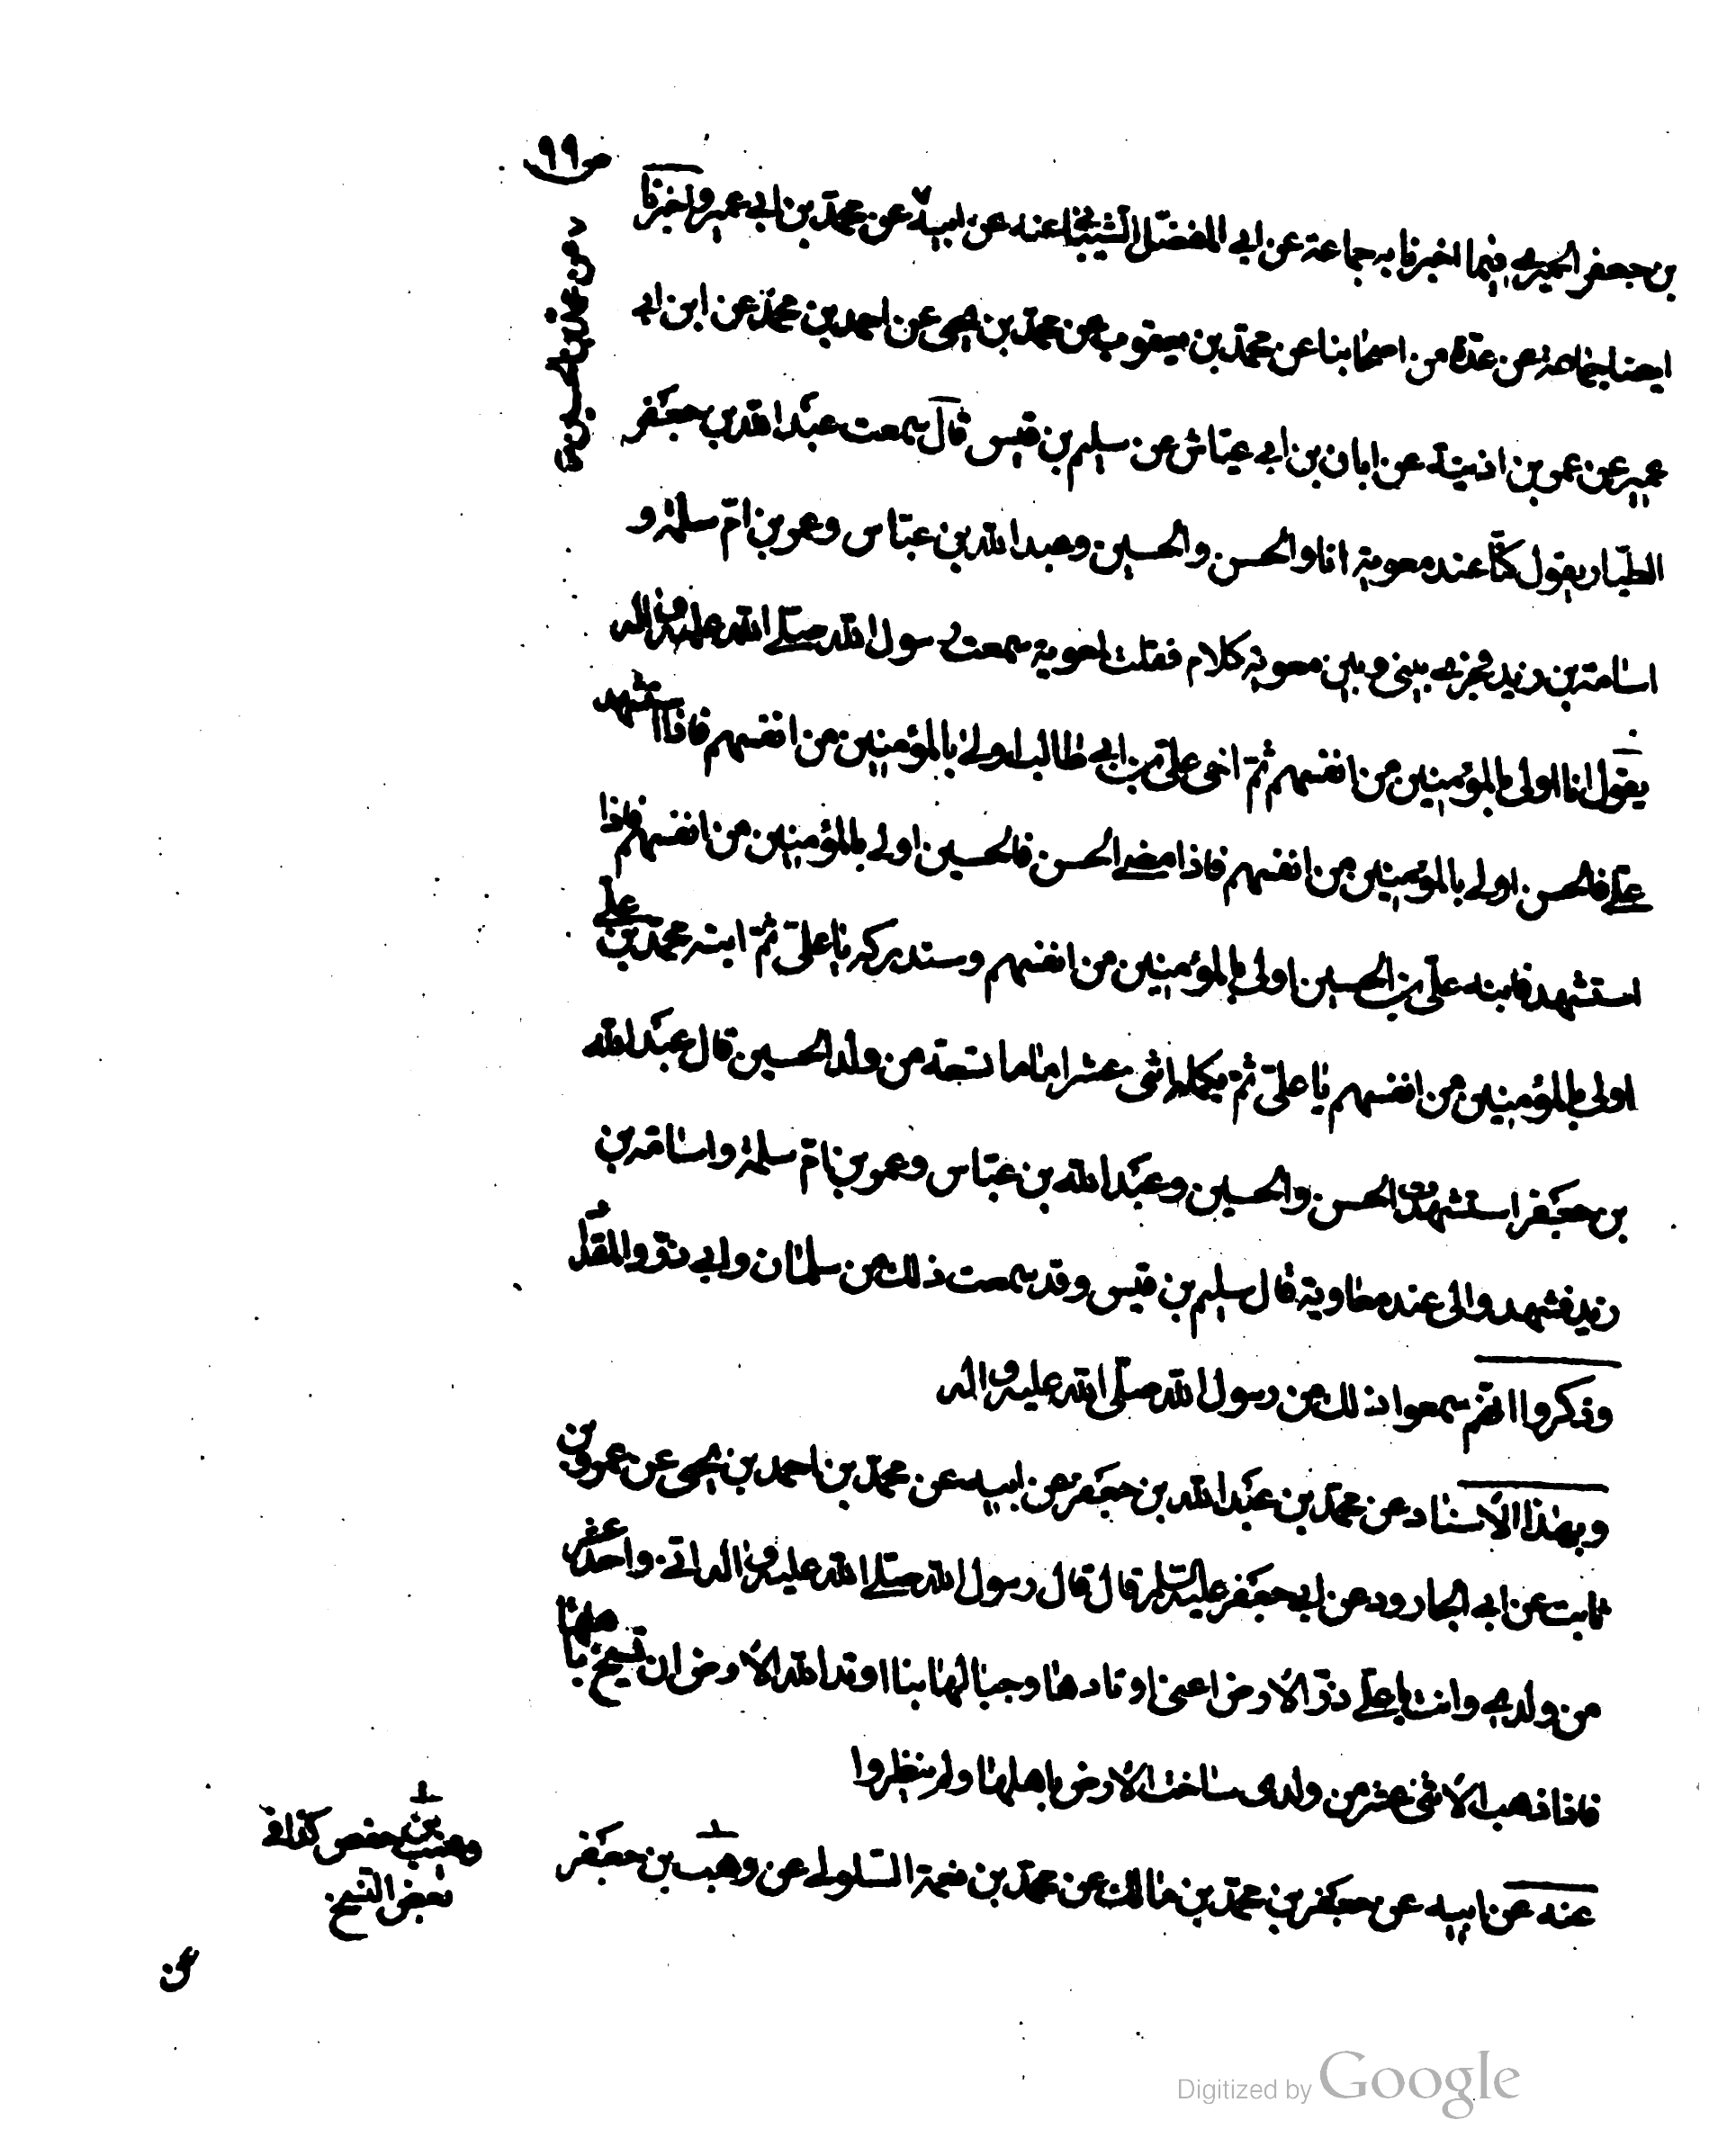 ص ٩٩
بن جعفر الحميري فيما اخبرنا به جماعة عن ابي المفضل الشيباني عنه عن ابيه عن محمد بن ابي عمير واخبرنا
ايضا جماعة عن عدة من اصحابنا عن محمد بن يعقوب عن محمد بن يحيى عن احمد بن محمد عن ابن ابي
عمير عن عمر بن اذينة عن ابان بن ابي عياش عن سليم بن قيس قال سمعت عبد الله بن جعفر
الطيار يقول كنا عند معوية انا والحسن والحسين وعبد الله بن عباس وعمر بن ام سلمة و
اسامة بن زيد فجرى بيني وبين معوية كلام فقلت لمعوية سمعت رسول الله صلى الله عليه واله
يقول انا اولى بالمؤمنين من انفسهم ثم اخي علي بن ابي طالب اولى بالمؤمنين من انفسهم فاذا استشهد
علي فالحسن اولى بالمؤمنين من انفسهم فاذا مضى الحسن فالحسين اولى بالمؤمنين من انفسهم فاذا
استشهد فابنه علي بن الحسين اولى بالمؤمنين من انفسهم وستدركه يا علي ثم ابنه محمد بن علي
اولى بالمؤمنين من انفسهم يا علي ثم يكمله اثنى عشر اماما تسعة من ولد الحسين قال عبد الله
بن جعفر استشهدت الحسن والحسين وعبد الله بن عباس وعمر بن ام سلمة واسامة بن
زيد فشهدوا لي عند معاوية قال سليم بن قيس وقد سمعت ذلك من سلمان وابي ذر والمقداد
وذكروا انهم سمعوا ذلك من رسول الله صلى الله عليه واله
وبهذا الاسناد عن محمد بن عبد الله بن جعفر عن ابيه عن محمد بن احمد بن يحيى عن عمرو بن
ثابت عن ابي الجارود عن ابي جعفر عليه السلم قال قال رسول الله صلى الله عليه واله اني واحد عشر
من ولدي وانت يا علي زر الارض اعني اوتادها وجبالها بنا اوتد الله الارض ان تسيخ باهلها
فاذا ذهب الاثنى عشر من ولدي ساخت الارض باهلها ولم ينظروا
عنه عن ابيه عن جعفر بن محمد بن مالك عن محمد بن نعمة السلولي عن وهب بن جعفر
وهيب بن حفص كذا في
بعض النسخ
عن
Digitized by Google